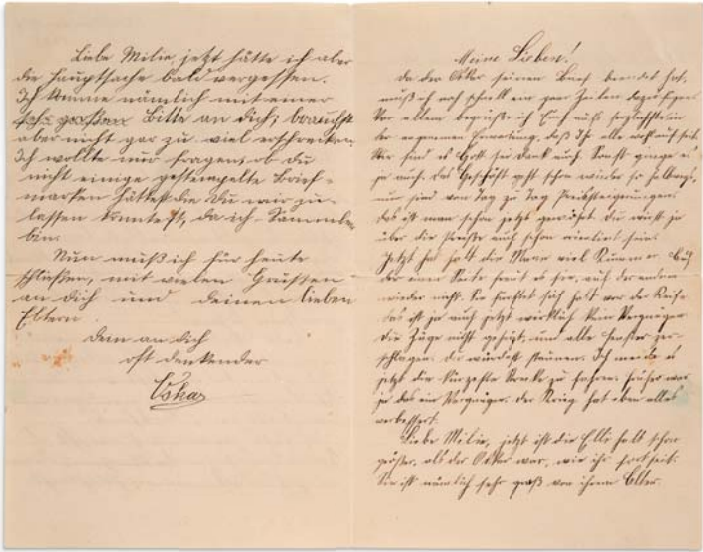 Liebe Milie, jetzt hätte ich aber
die Hauptsache bald vergessen.
Ich komme nämlich mit einer
sehr großen Bitte an dich; brauchst
aber nicht gar zu viel erschrecken,
Ich wollte nur fragen, ob du
nicht einige gestempelte Brief-
marken hättest die Du mir zu-
lassen könntest, da ich Sammler
bin.
Nun muß ich für heute
schließen, mit vielen Grüßen
an Dich und deinen lieben
Eltern
Dein an dich
oft denkender
Oskar
Meine Lieben!
Da der Oskar seinen Brief beendet hat,
muß ich noch schnell ein paar Zeilen dazufügen
Vor allem begrüße ich Euch aufs herzlichste in
der angenehmen Erwartung, daß Ihr alle wohlauf seit.
Wir sind es Gott sei Dank auch. Sonst ginge es
ja auch, das Geschäft geht schon wieder so halbwegs,
nur sind von Tag zu Tag Preissteigerungen.
Das ist man schon jetzt gewöhnt. Du wirst ja
über die Preise auch schon orientiert sein.
Jetzt hat halt die Mama viel Kummer. Auf
der einen Seite freut es sie, auf der andern
wieder nicht. Sie fürchtet sich halt vor der Reise.
Das ist ja auch jetzt wirklich kein Vergnügen
Die Züge nicht geheizt, und alle Fenster zer-
schlagen. Du würdest staunen. Ich meide es
jetzt die kürzeste Strecke zu fahren. Früher war
ja das ein Vergnügen. Der Krieg hat eben alles
verbessert.
Liebe Milie, jetzt ist die Elli halb schon
größer, als der Oskar war, wie ihr fort seit.
Sie ist nämlich sehr groß von ihrem Alter.